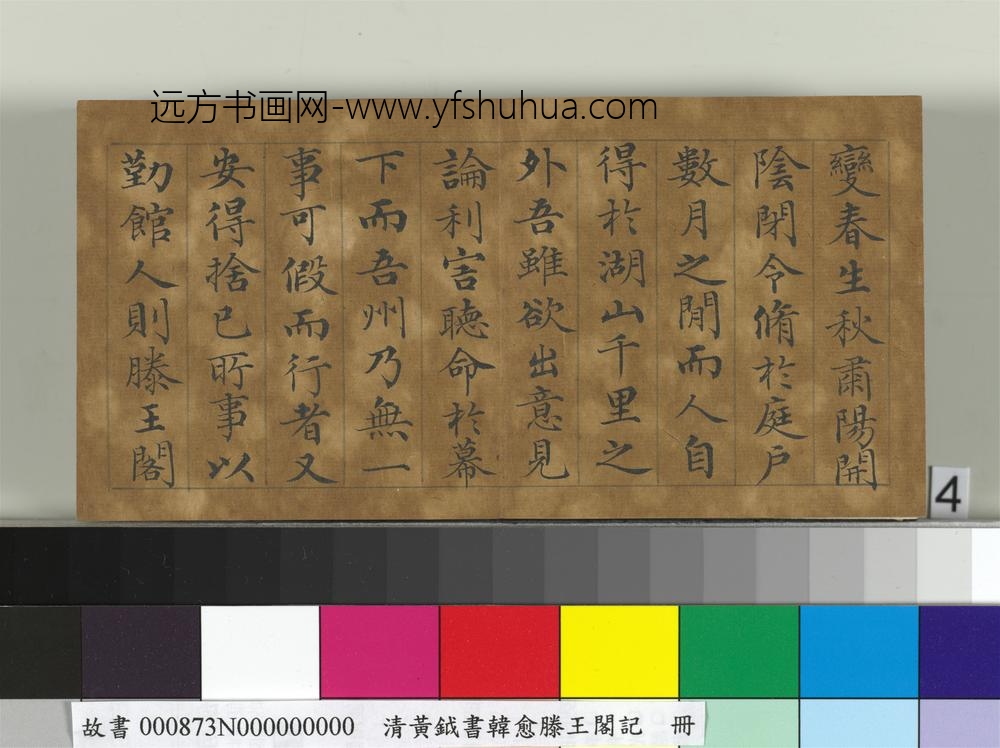 远方书画网-www.yfshuhua.com
變春生秋肅陽開
陰閉令脩於庭户
數月之間而人自
得於湖山千里之
外吾雖欲出意見
論利害聴命於幕
下而吾州乃無一
事可假而行者又
安得捨已所事以
勤館人則滕王閣
4
故書 000873N000000000 清黃鉞書韓愈滕王閣記 冊